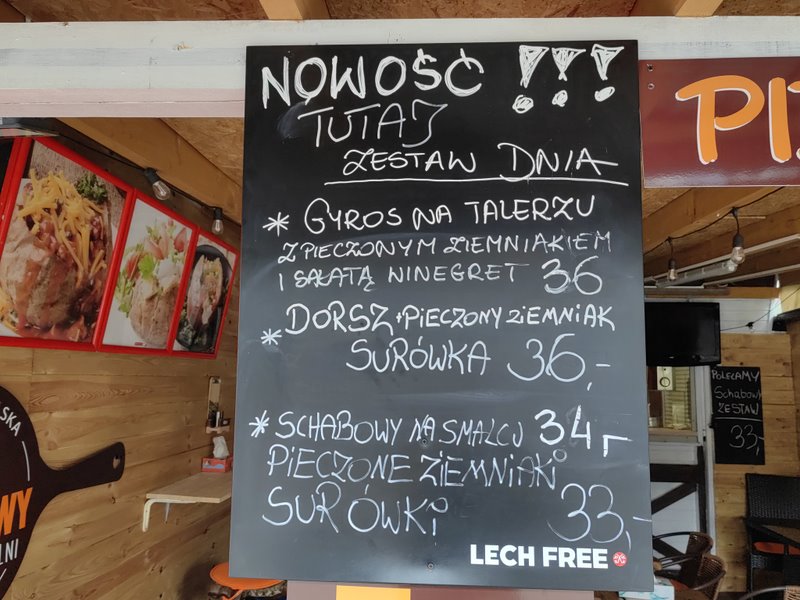 NOWOŚĆ !!!
TUTAJ
ZESTAW DNIA
* GYROS NA TALERZU
Z PIECZONYM ZIEMNIAKIEM
I SAŁATĄ NINEGRET 36
* DORSZ + PIECZONY ZIEMNIAK
SURÓWKA 36,-
* SCHABOWY NA SMALCU 34,-
PIECZONE ZIEMNIAKI
SURÓWKI 33,-
LECH FREE
PI
POLECAMY
Schabowy
ZESTAW
33,-